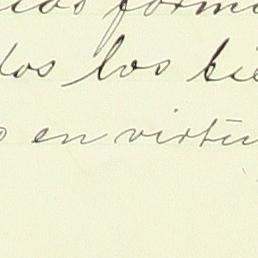 form
dos los bie
en virtu